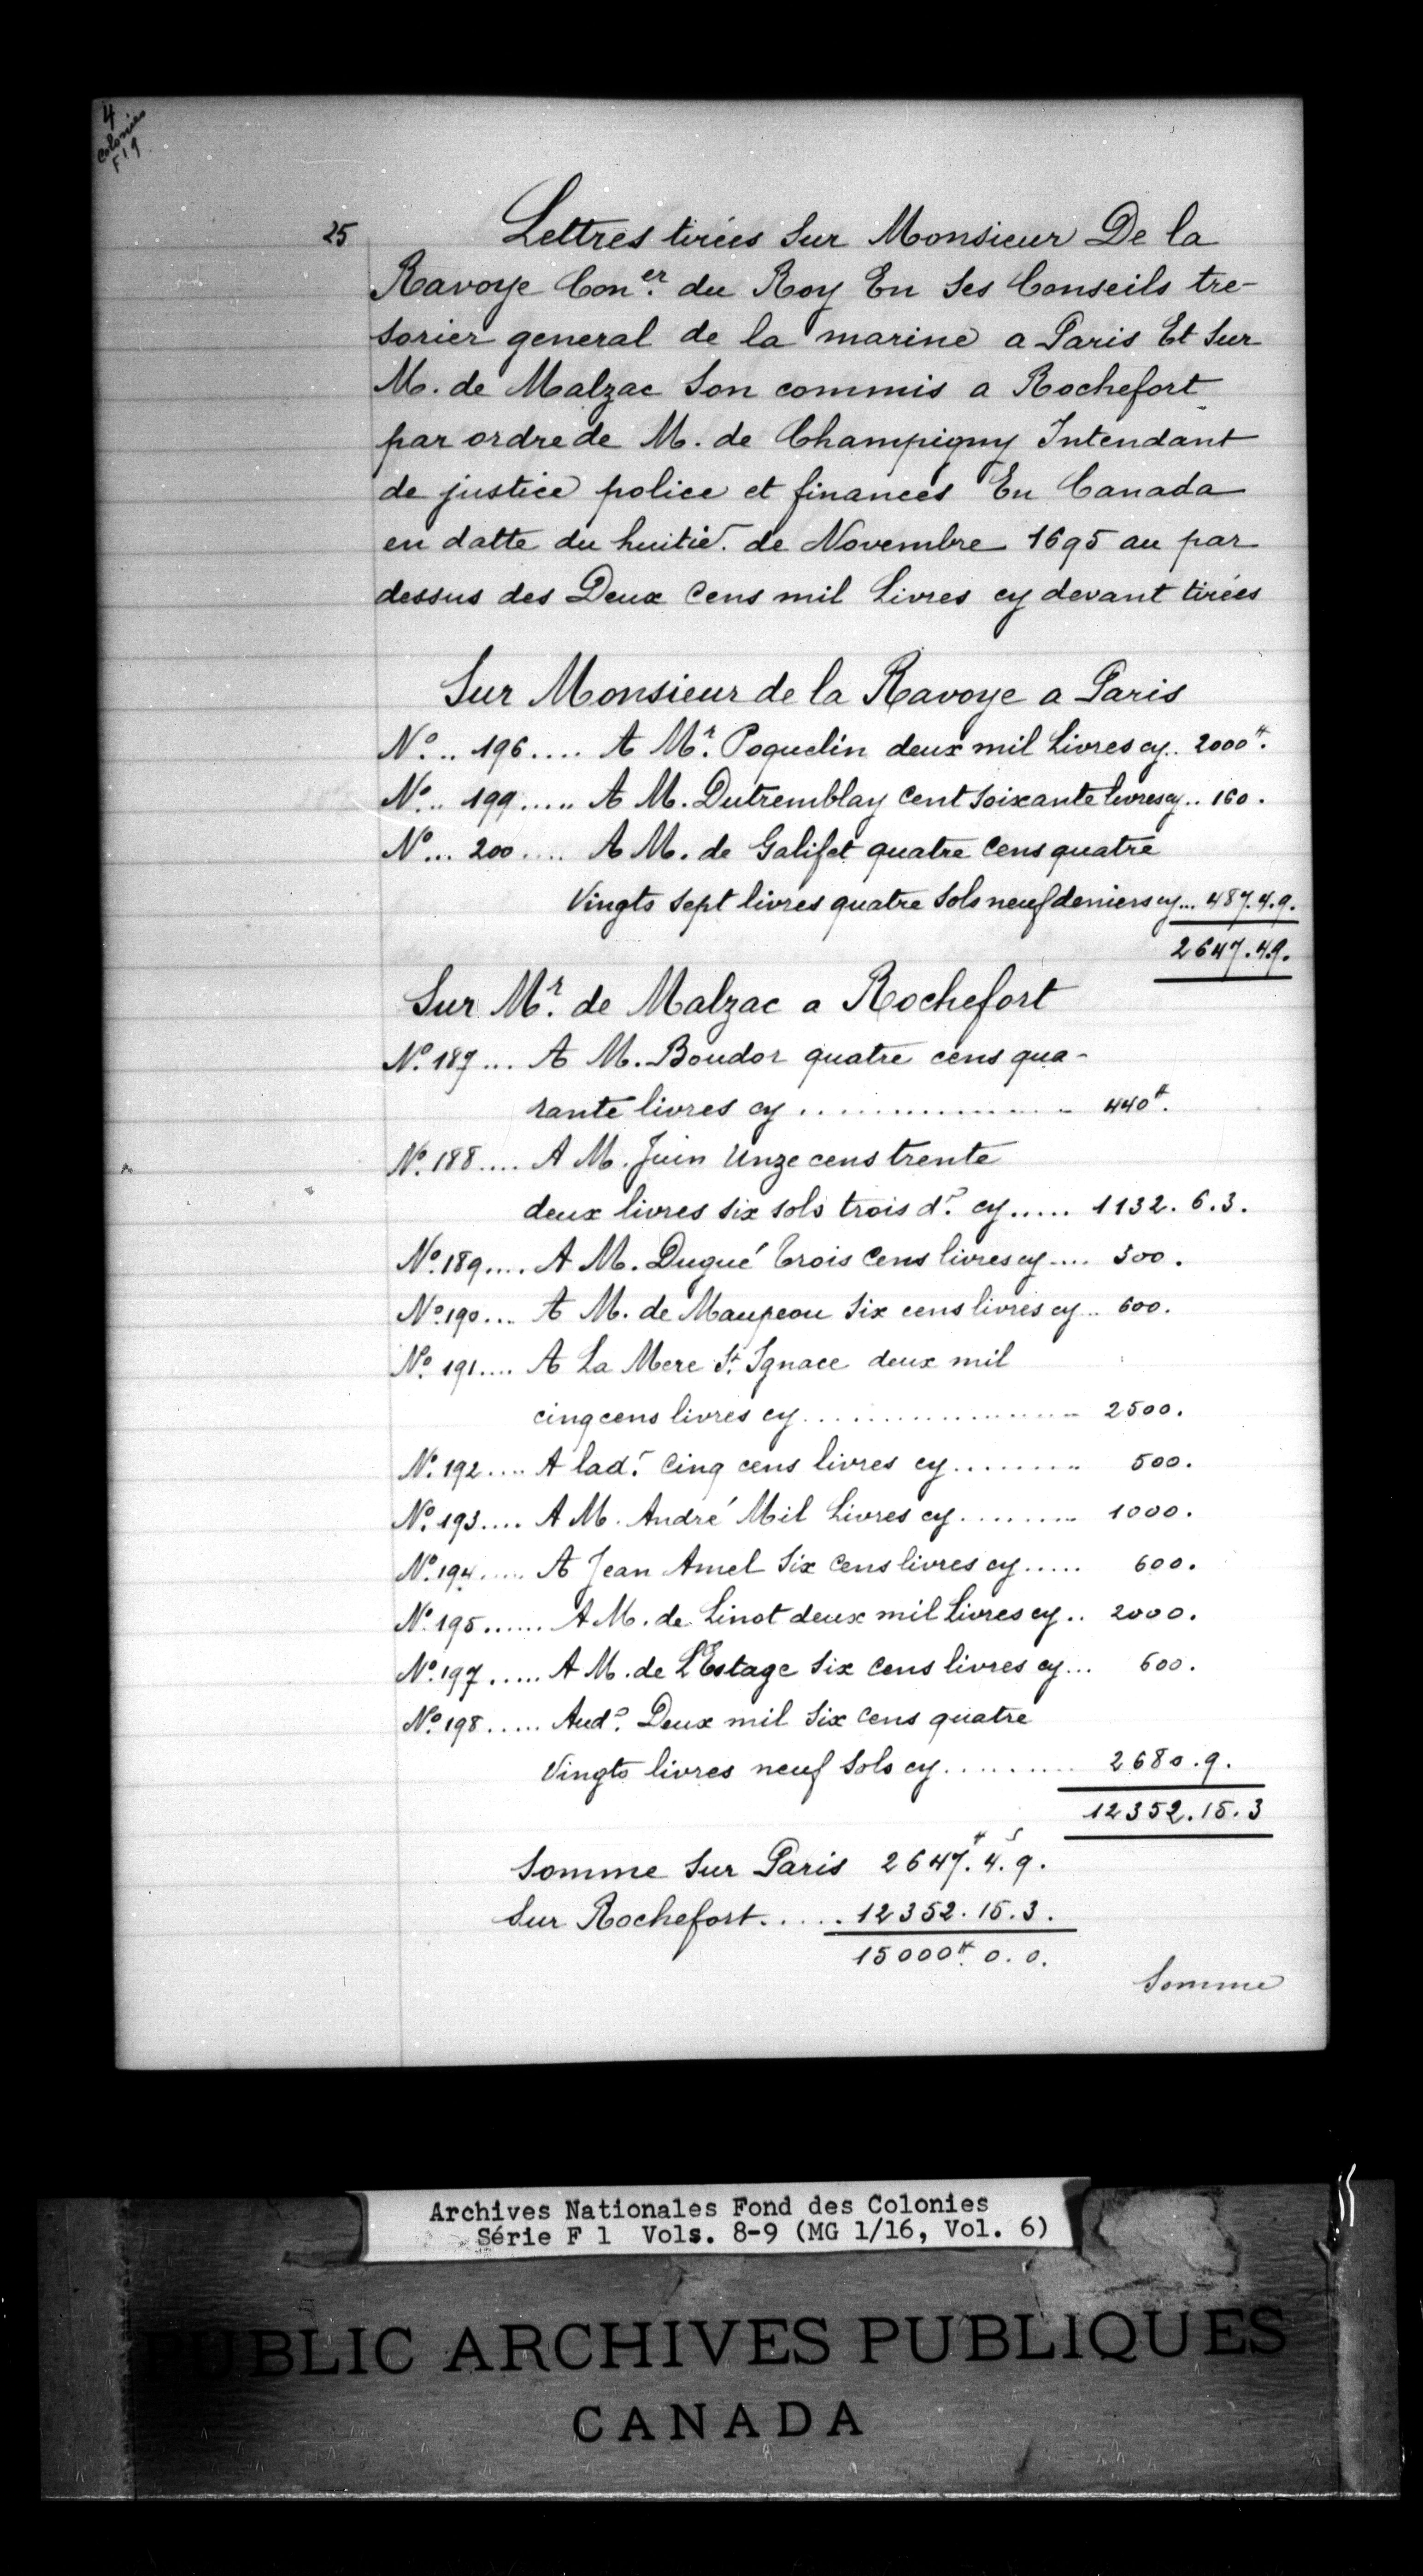 4
Colonies
F 19
25
Lettres tirées Sur Monsieur De la
Ravoye Con.er du Roy En Ses Conseils tre-
sorier general de la marine a Paris Et Sur
M. de Malzac Son commis a Rochefort
par ordre de M. de Champigny Intendant
de justice police et finances En Canada
en datte du huitie. de Novembre 1695 au par
dessus des Deux Cens mil Livres cy devant tirées
Sur Monsieur de la Ravoye a Paris
No. .. 196 .... A Mr. Poquelin deux mil Livres cy .. 2000#.
No. .. 199 ..... A M. Dutremblay Cent Soixante livres cy .. 160.
No ... 200 .... A M. de Galifet quatre Cens quatre
Vingts Sept livres quatre Sols neuf deniers cy ... 487.4.9.
2647.4.9.
Sur Mr. de Malzac a Rochefort
No. 187 ... A M. Boudor quatre cens qua-
rante livres cy .................. 440#.
No. 188 .... A M. Juin Unze cens trente
deux livres six sols trois d.s cy ..... 1132. 6. 3.
No. 189 .... A M. Dugué Trois Cens livres cy .... 300.
No. 190 ... A M. de Maupeou Six cens livres cy .. 600.
No. 191 .... A La Mere St. Ignace deux mil
cinq cens livres cy .................. 2500.
No. 192 .... A lad. Cinq cens livres cy ......... 500.
No. 193 .... A M. André Mil Livres cy ......... 1000.
No. 194 ..... A Jean Amel Six Cens livres cy ..... 600.
No. 195 ...... A M. de Linot deux mil Livres cy .. 2000.
No. 197 ..... A M. de L'Estage Six Cens livres cy ... 600.
No. 198 ..... Aud. Deux mil Six Cens quatre
Vingts livres neuf Sols cy .......... 2680.9.
12352.15.3
Somme Sur Paris 2647.# 4.s 9.
Sur Rochefort ..... 12352.15.3.
15000#. 0. 0.
Somme
Archives Nationales Fond des Colonies
Série F 1 Vols. 8-9 (MG 1/16, Vol. 6)
PUBLIC ARCHIVES PUBLIQUES
CANADA